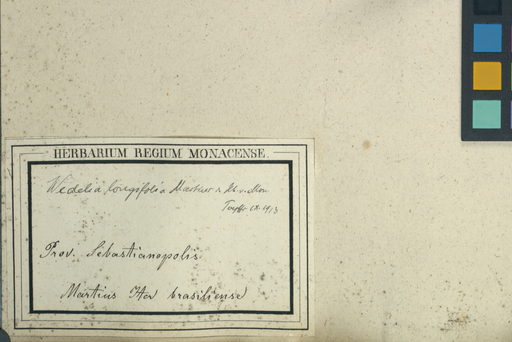 HERBARIUM REGIUM MONACENSE.
Wedelia longifolia
1913
Prov. Sebastianopolis
Martius Iter brasiliense